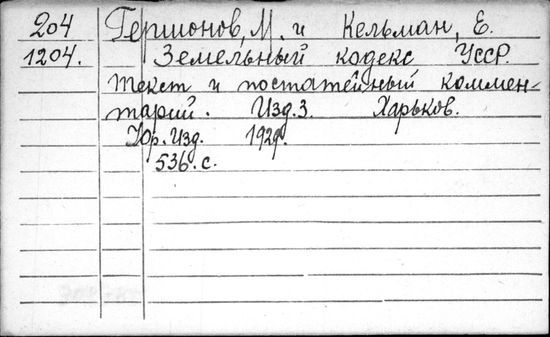 204 Гершонов, М. и Кельман, Е.
1204. Земельный кодекс УССР.
Текст и постатейный коммен-
тарий. Изд. 3. Харьков.
Юр. Изд. 1929.
536. с.